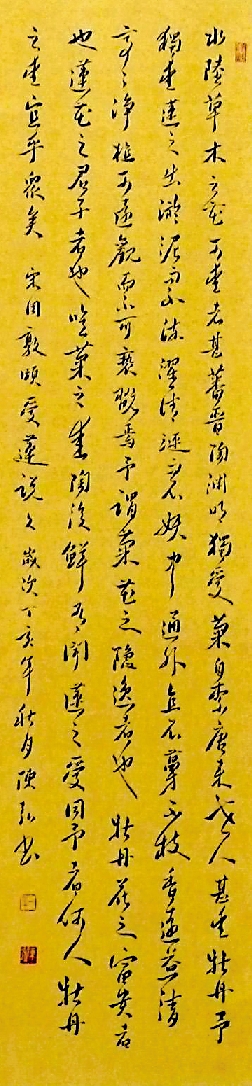 水陸草木之花可愛者甚蕃晉陶淵明獨愛菊自李唐來世人甚愛牡丹予
獨愛蓮之出淤泥而不染濯清漣而不妖中通外直不蔓不枝香遠益清
亭々净植可遠觀而不可褻翫焉予謂菊花之隱逸者也牡丹花之富貴者
也蓮花之君子者也噫菊之愛陶後鮮有聞蓮之愛同予者何人牡丹
之愛宜乎眾矣 宋周敦頤愛蓮說 歲次丁亥年秋月陳弘書